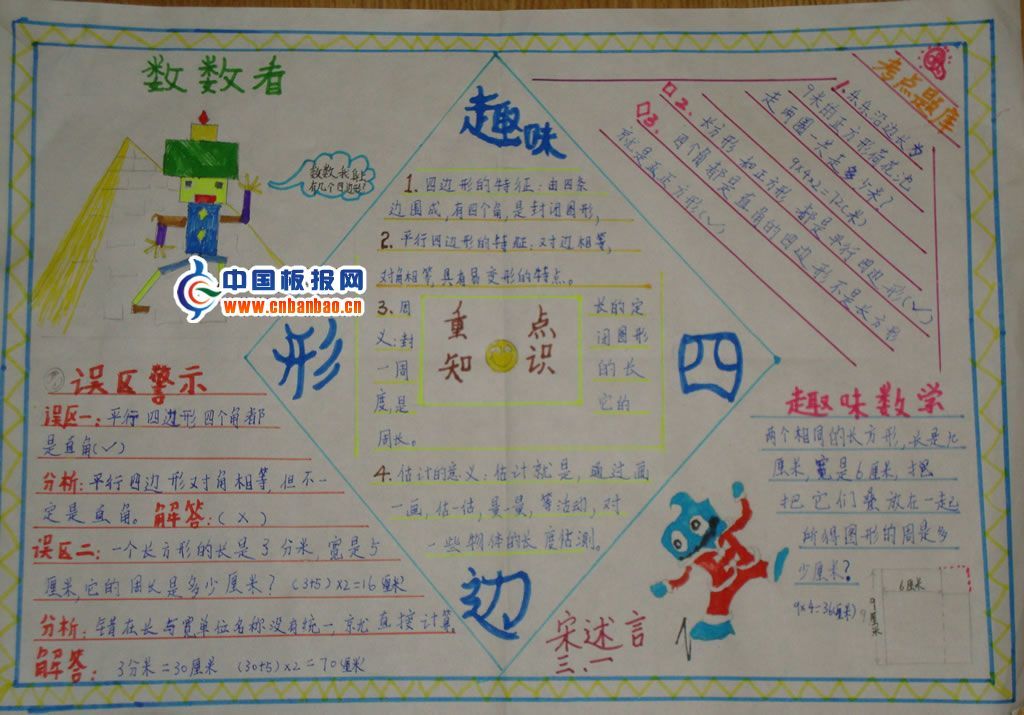 数数看
数数我身上
有几个四边形?
中国板报网
www.cnbanbao.cn
趣味
四
边
形
1. 四边形的特征:由四条
边围成,有四个角,是封闭图形,
2. 平行四边形的特征:对边相等,
对角相等具有易变形的特点。
3. 周 长的定
义:封 闭图形
一周 的长
度,是 它的
周长。
重点
知识
4. 估计的意义:估计就是,通过画
一画,估一估,量一量,等活动,对
一些物体的长度估测。
考点题库
1.乐乐沿边长为
9米的正方形荷花池
走两圈一共走多少米?
9×4×2=72(米)
2.长方形和正方形都是平行四边形(✓)
3.四个角都是直角的四边形不是长方形
就是正方形(✓)
误区警示
误区一:平行四边形四个角都
是直角(✓)
分析:平行四边形对角相等,但不一
定是直角。解答:(×)
误区二:一个长方形的长是3分米,宽是5
厘米,它的周长是多少厘米?(3+5)×2=16厘米
分析:错在长与宽单位名称没有统一,就直接计算。
解答:3分米=30厘米 (30+5)×2=70厘米
趣味数学
两个相同的长方形,长是九
厘米,宽是6厘米,把
把它们叠放在一起
所得图形的周是多
少厘米?
9×4=36(厘米)
6厘米
9厘米
宋述言
三、一